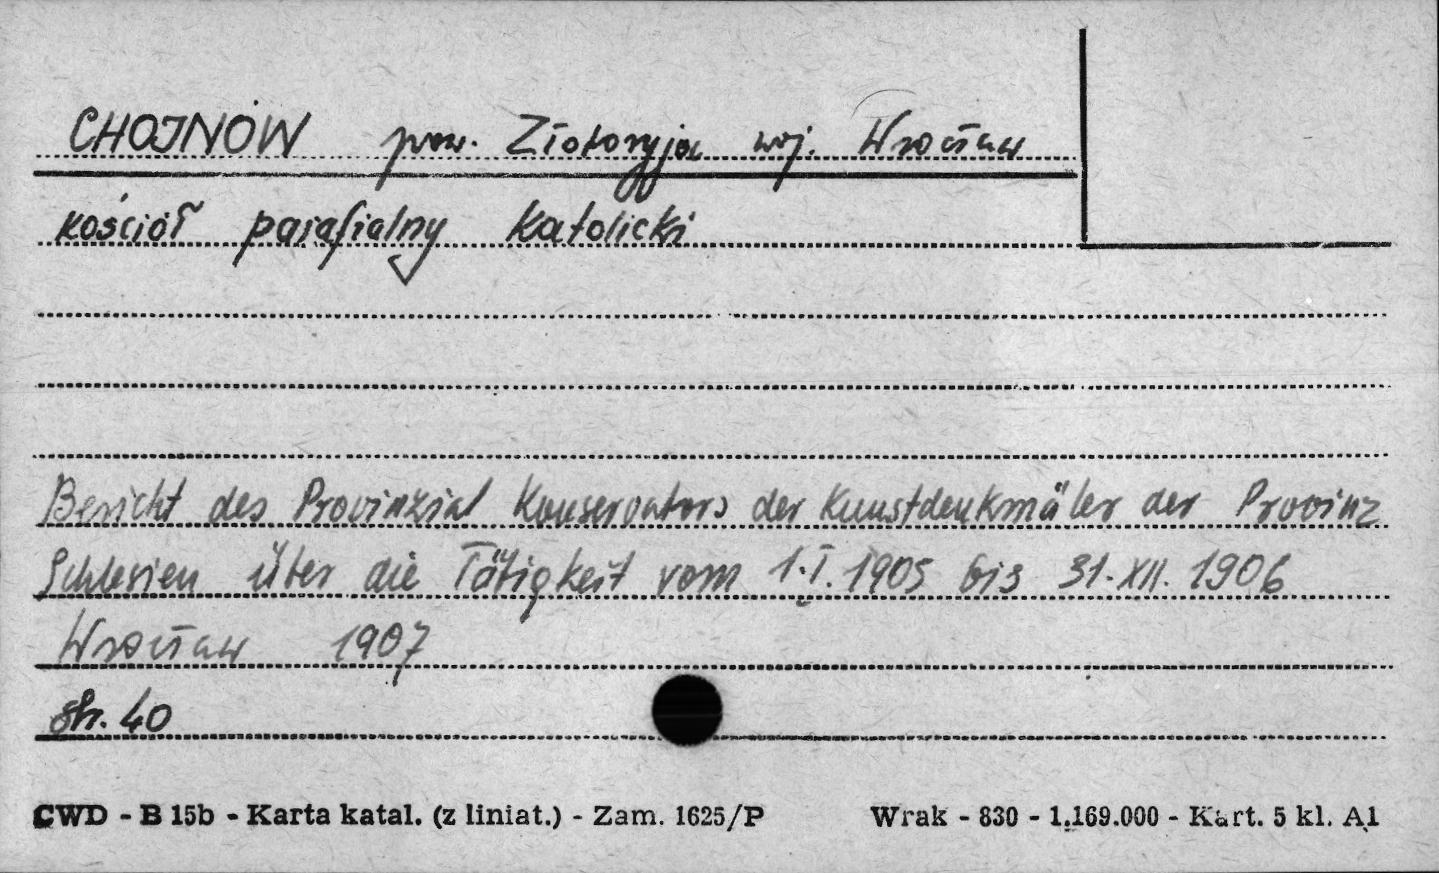 CHOJNÓW pow. Złotoryja woj. Wrocław
kościół parafialny katolicki
Bericht des Provinzial Konservators der Kunstdenkmäler der Provinz
Schlesien über die Tätigkeit vom 1.I.1905 bis 31.XII.1906
Wrocław 1907
str. 40
CWD - B 15b - Karta katal. (z liniat.) - Zam. 1625/P Wrak - 830 - 1.169.000 - Kart. 5 kl. A1